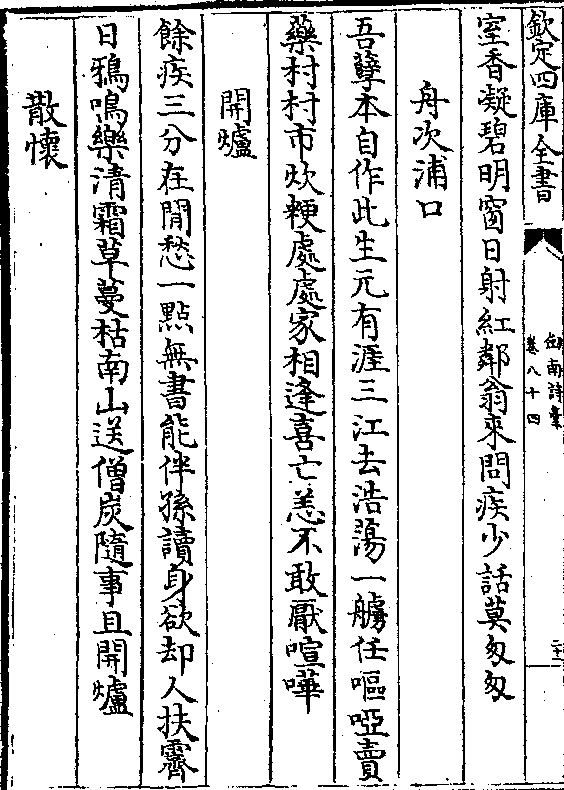 欽定四庫全書
劍南詩稾
卷八十四
室香凝碧明窗日射紅鄰翁來問疾少話莫匆匆
舟次浦口
吾孽本自作此生元有涯三江去浩蕩一艣任嘔啞賣
藥村村市炊粳處處家相逢喜亡恙不敢厭喧嘩
開爐
餘疾三分在閒愁一點無書能伴孫讀身欲却人扶霽
日鴉鳴樂清霜草蔓枯南山送僧炭隨事且開爐
散懷